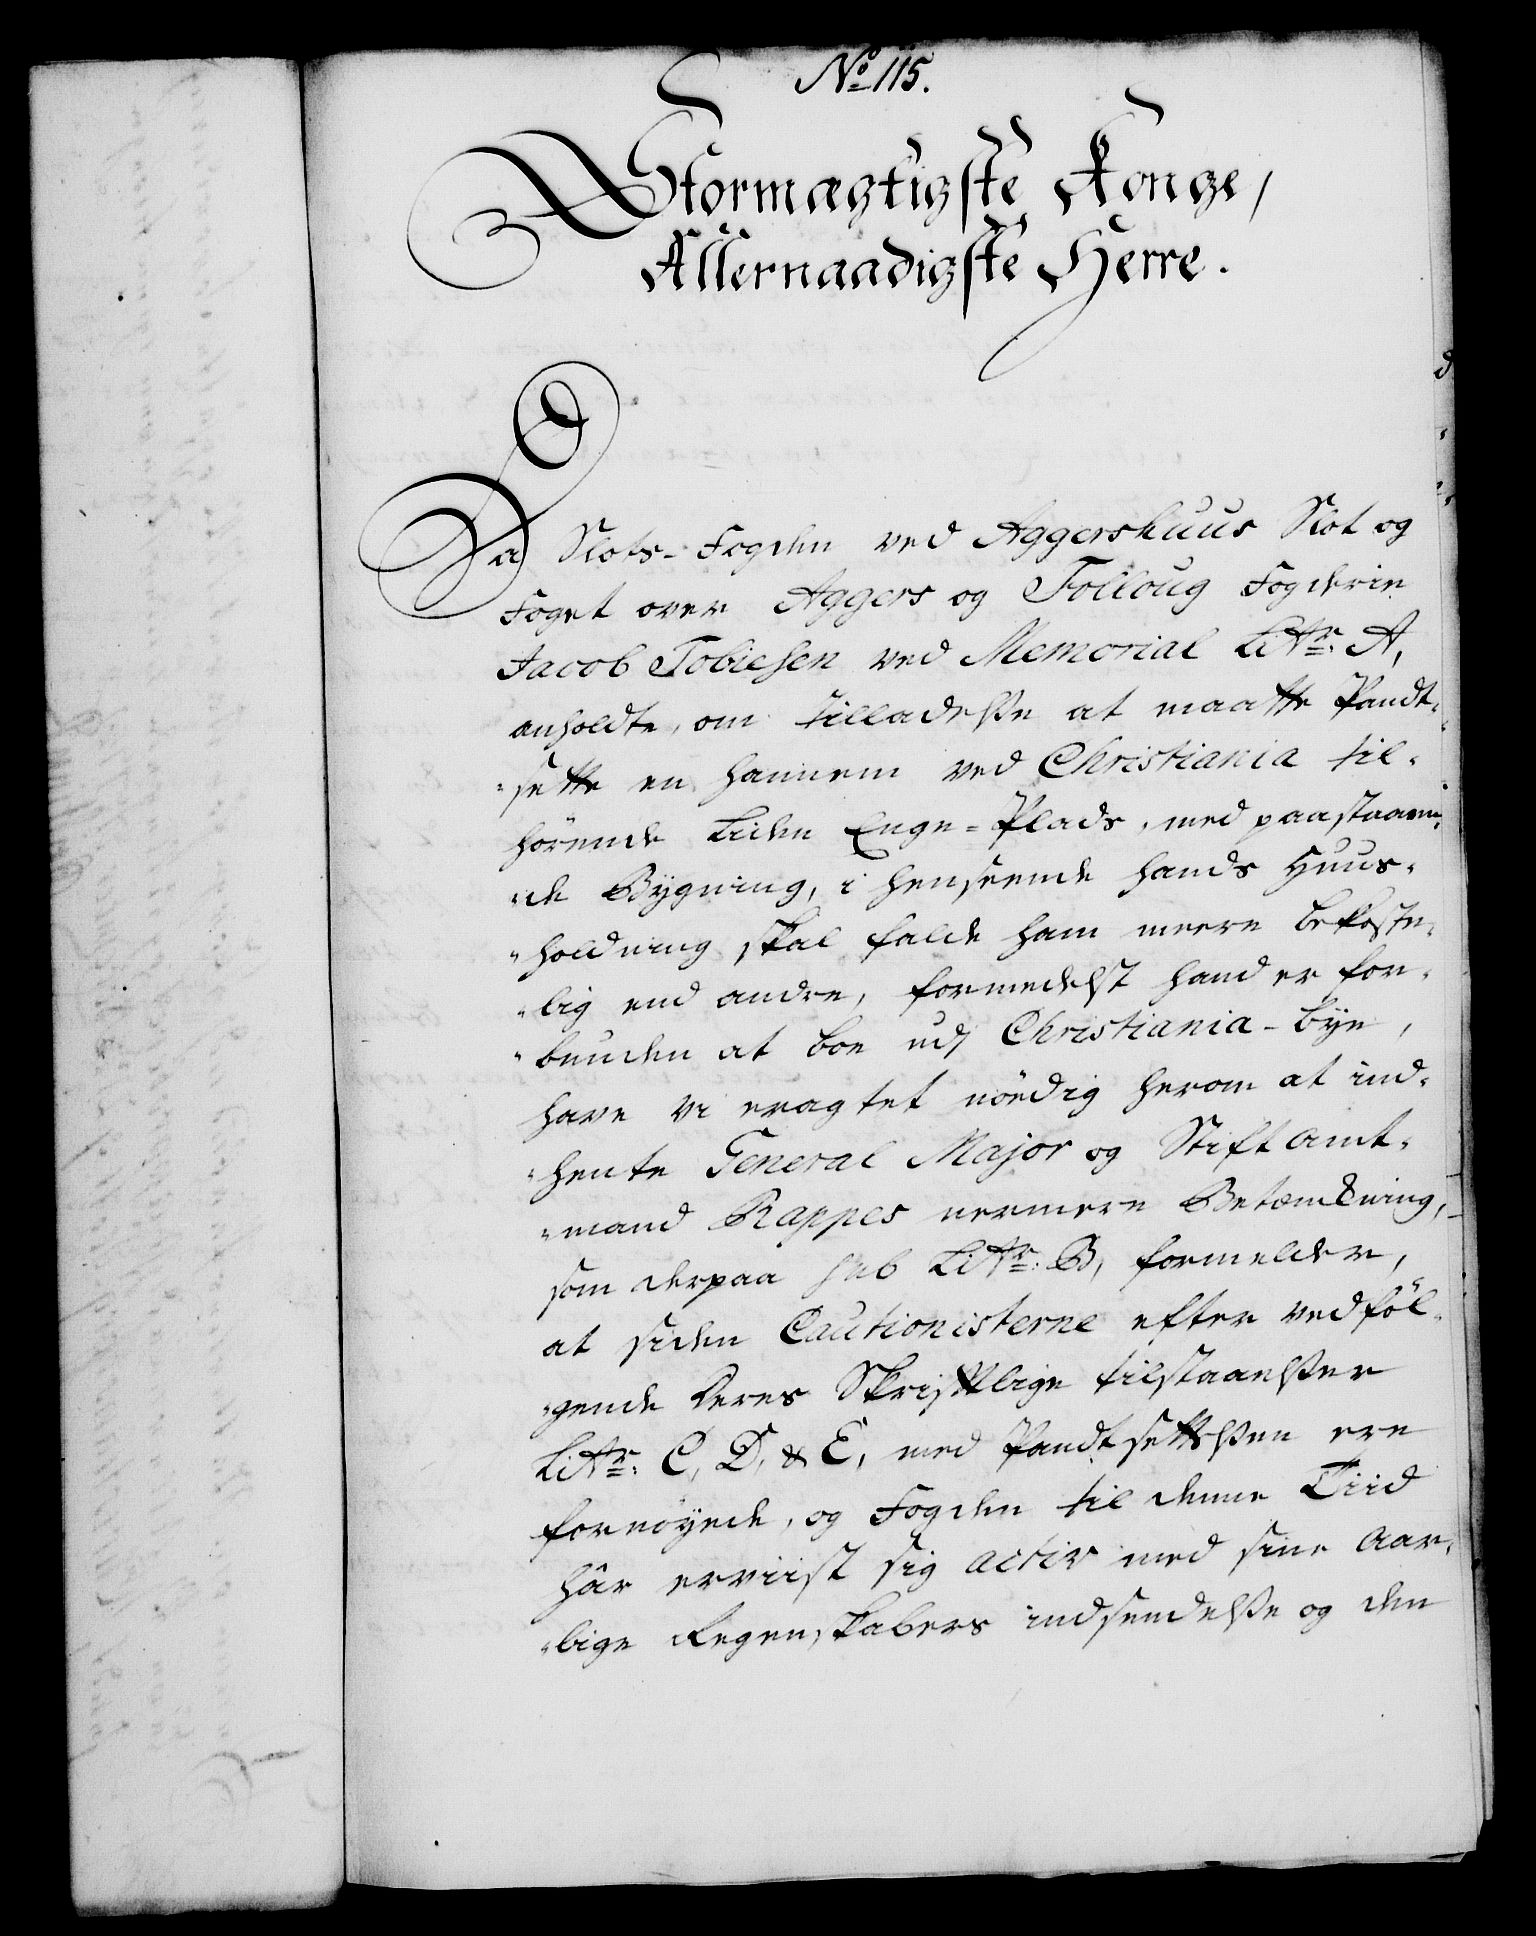 No 115.
Stormægtigste Konge,
Allernaadigste Herre.
Da Slots-Fogden ved Aggershuus Slot og
Foget over Aggers og Folloug Fogderie
Jacob Tobiesen ved Memorial Littr: A,
anholdte, om tilladelsse at maatte Pandt-
sette en hannem ved Christiania til-
hørende Liden Enge-Plads, med paastaaen-
de Bygning, i henseende hands Huus-
holdning skal falde ham meere bekoste-
lig end andre, formedelst hand er for-
buuden at boe udj Christiania-bye,
have vi eragtet nødig herom at ind-
hente General Major og Stiftamt-
mand Rappes nermere Betænkning,
som derpaa sub Littr: B, formelder,
at siden Cautionisterne efter vedføl-
gende deres Skriftlige tilstaaelsser
Littr: C, D, & E, med Pandtsettelssen ere
fornøyede, og Fogden til denne Tiid
hâr erviist sig activ med sine Aar-
lige Regenskabers indsendelsse og den